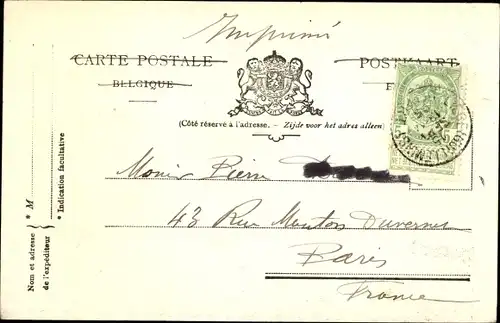 Imprimé
CARTE POSTALE
POSTKAART
BELGIQUE
(Côté réservé à l'adresse. - Zijde voor het adres alleen)
Monsr Pierre
43 Rue Mouton Duvernet
Paris
France
Nom et adresse
de l'expéditeur
* M
* Indication facultative